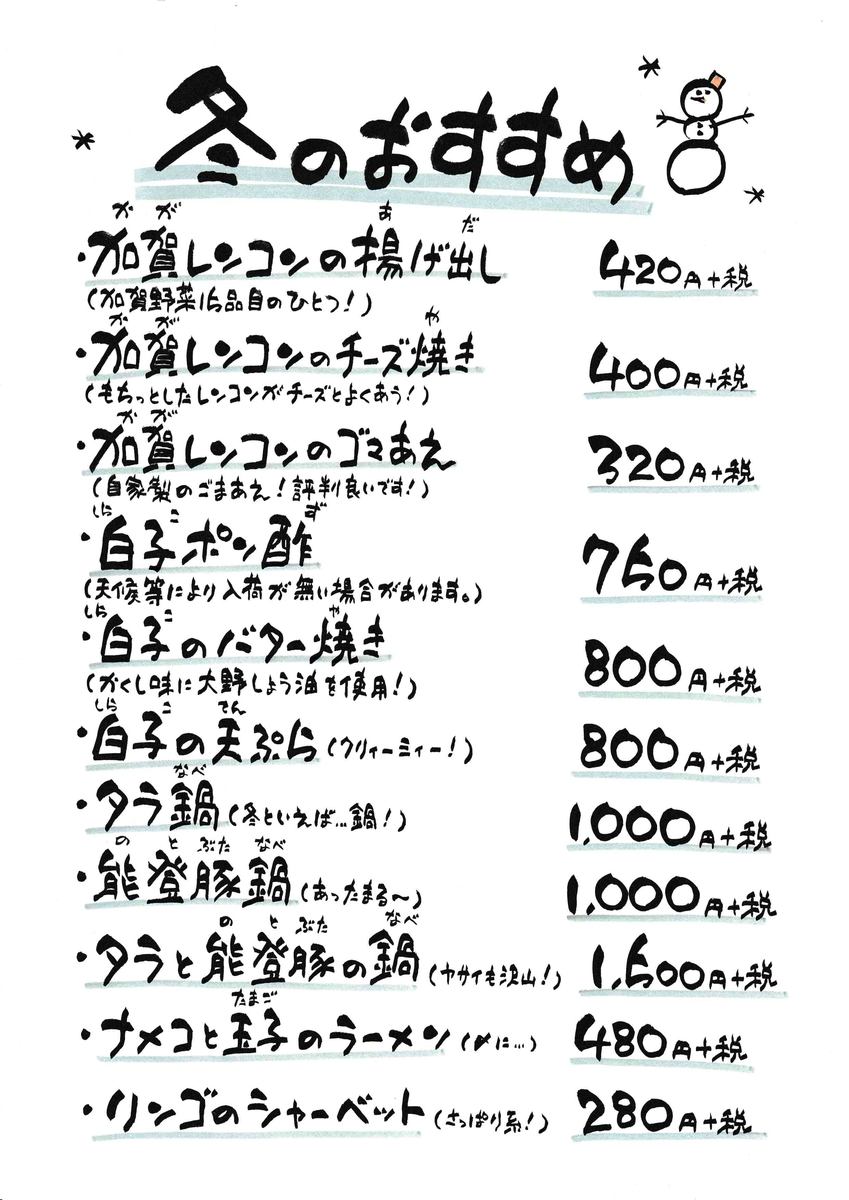 冬のおすすめ
かが　あ　だ
・加賀レンコンの揚げ出し 420円+税
(加賀野菜15品目のひとつ!)
かが　や
・加賀レンコンのチーズ焼き 400円+税
(もちっとしたレンコンがチーズとよくあう!)
かが
・加賀レンコンのゴマあえ 320円+税
(自家製のごまあえ!評判良いです!)
しらこ　ず
・白子ポン酢 750円+税
(天候等により入荷が無い場合があります。)
しらこ　や
・白子のバター焼き 800円+税
(かくし味に大野しょう油を使用!)
しらこ　てん
・白子の天ぷら(クリィーミィー!) 800円+税
なべ
・タラ鍋(冬といえば…鍋!) 1,000円+税
のとぶたなべ
・能登豚鍋(あったまる〜) 1,000円+税
のとぶた　なべ
・タラと能登豚の鍋(ヤサイも沢山!) 1,500円+税
たまご
・ナメコと玉子のラーメン(〆に…) 480円+税
・リンゴのシャーベット(さっぱり系!) 280円+税